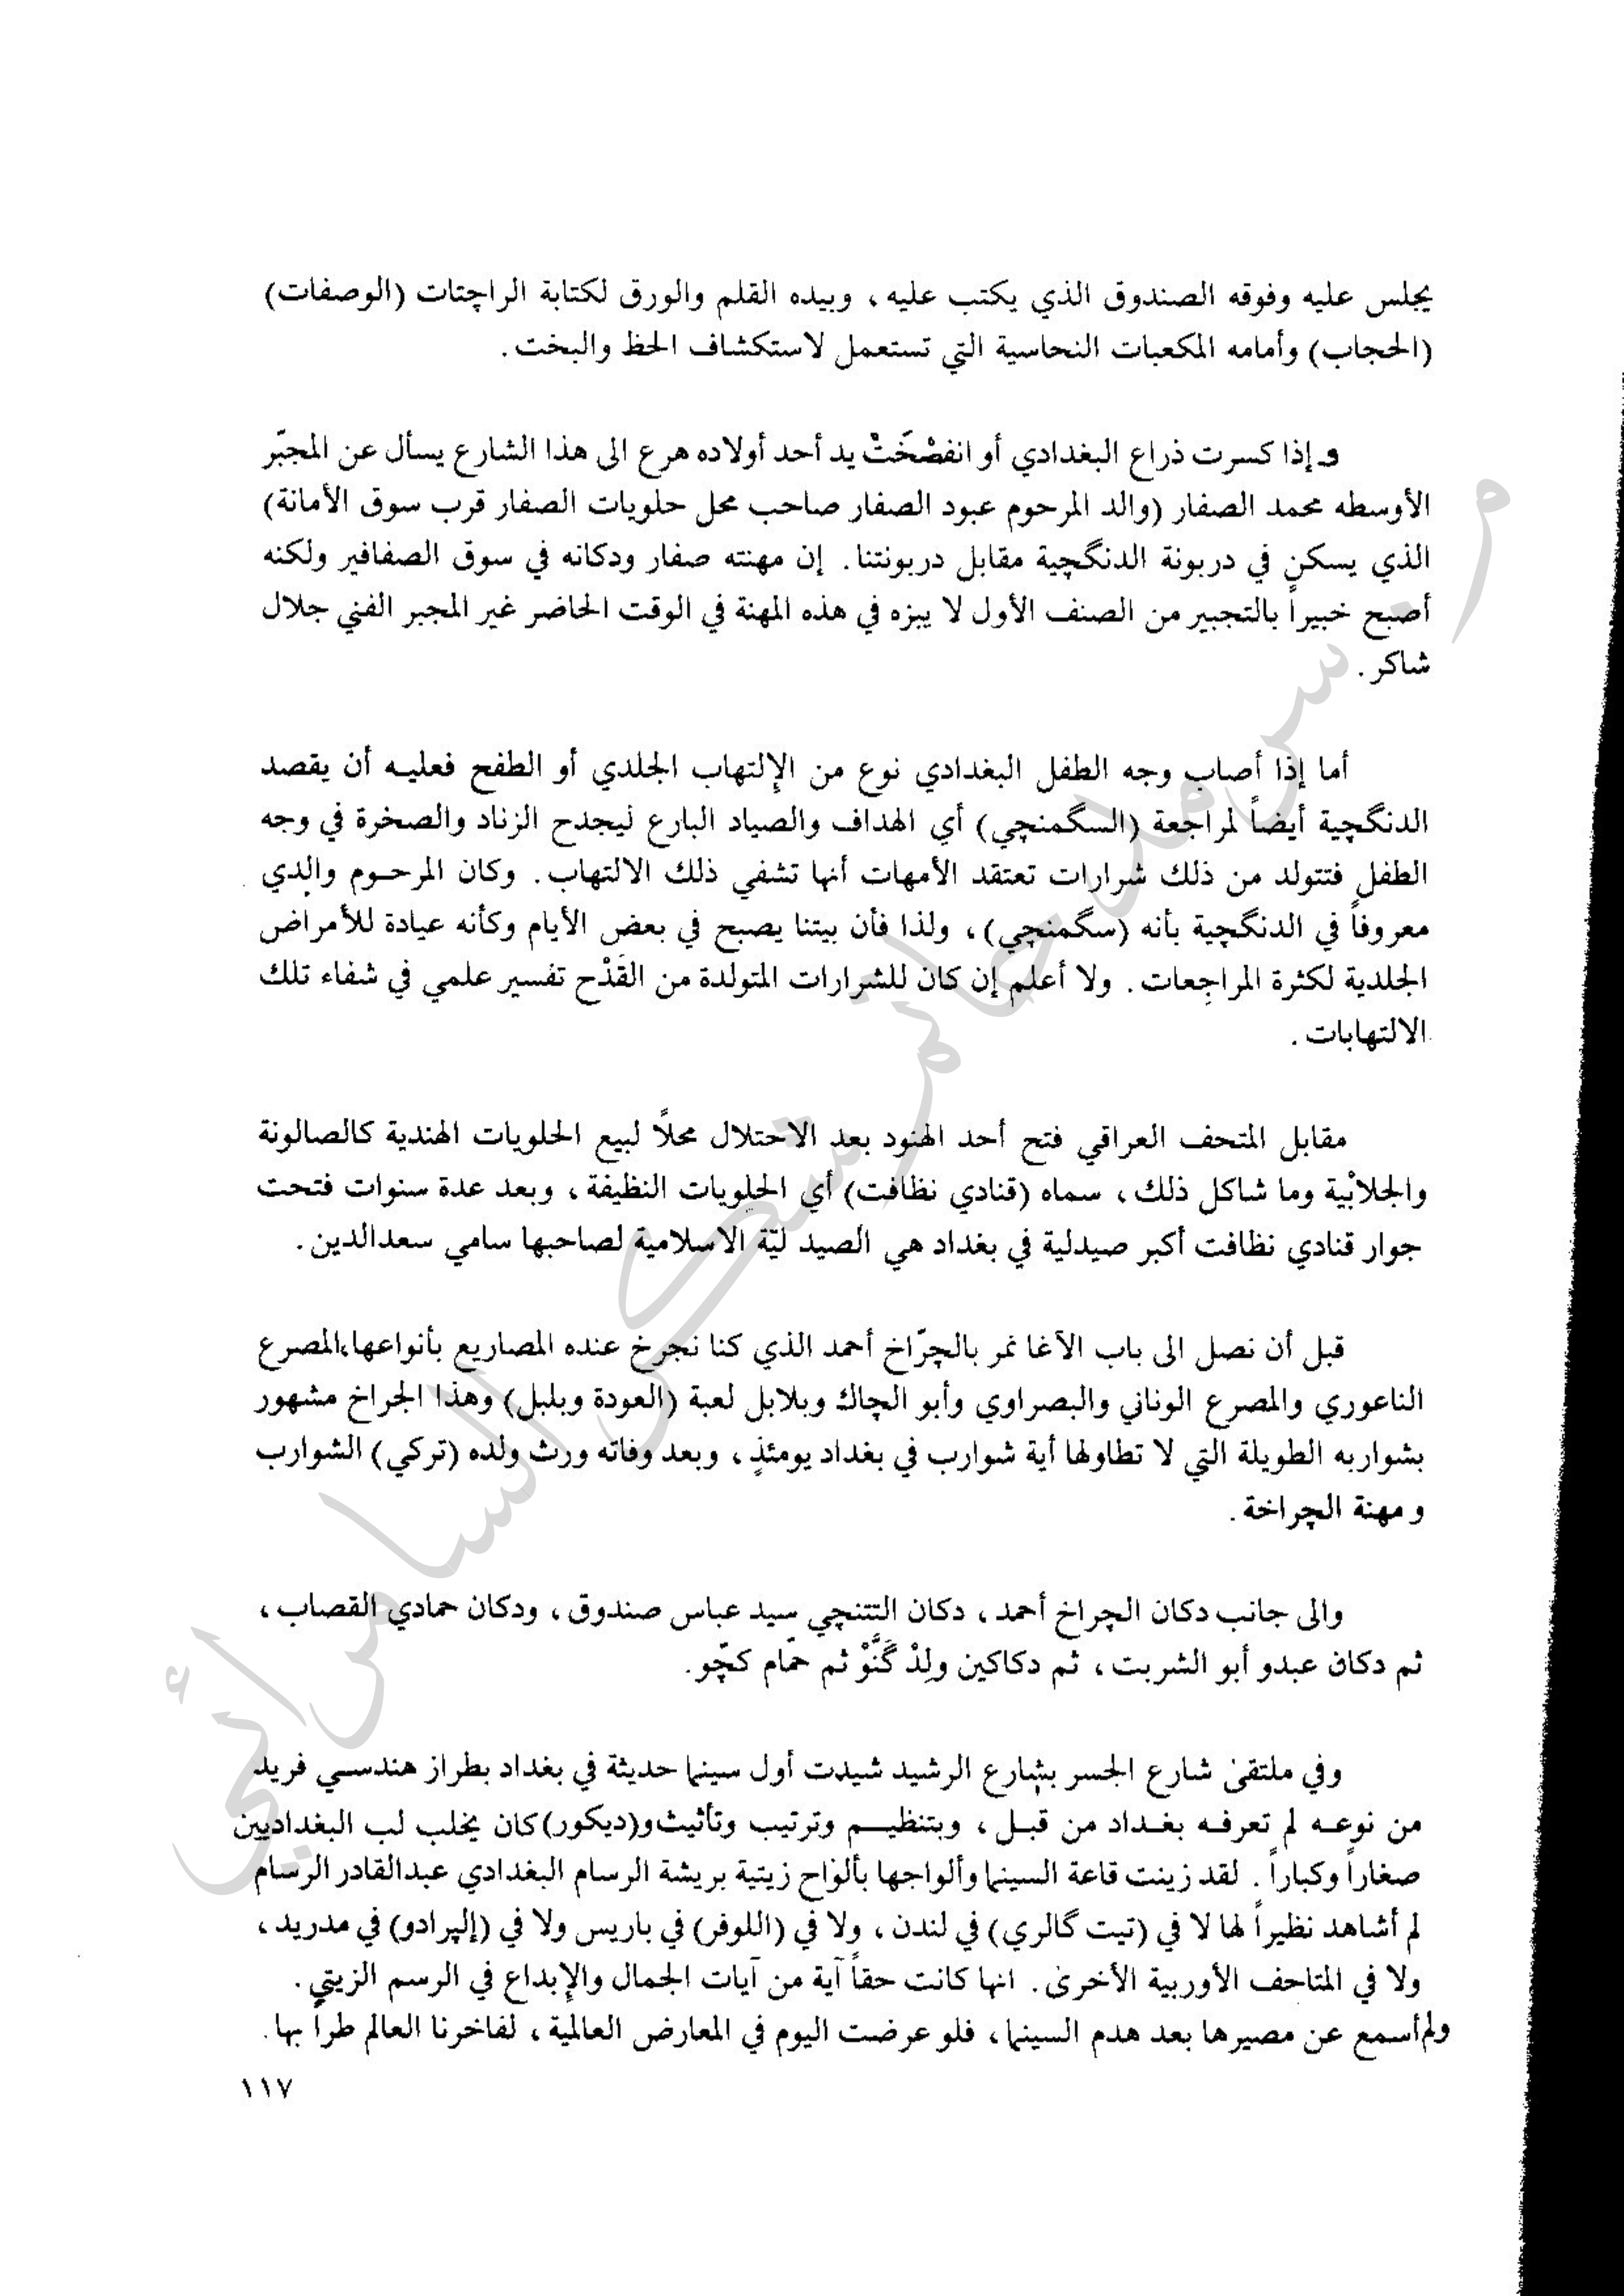 يجلس عليه وفوقه الصندوق الذي يكتب عليه ، وبيده القلم والورق لكتابة الراچتات (الوصفات)
(الحجاب) وأمامه المكعبات النحاسية التي تستعمل لاستكشاف الحظ والبخت .
و إذا كسرت ذراع البغدادي أو انفضْخَتْ يد أحد أولاده هرع الى هذا الشارع يسأل عن المجبّر
الأوسطه محمد الصفار (والد المرحوم عبود الصفار صاحب محل حلويات الصفار قرب سوق الأمانة)
الذي يسكن في دربونة الدنگچية مقابل دربونتنا . إن مهنته صفار ودكانه في سوق الصفافير ولكنه
أصبح خبيراً بالتجبير من الصنف الأول لا يبزه في هذه المهنة في الوقت الحاضر غير المجبر الفني جلال
شاكر .
أما إذا أصاب وجه الطفل البغدادي نوع من الإلتهاب الجلدي أو الطفح فعليه أن يقصد
الدنگچية أيضاً لمراجعة (السگمنچي) أي الهداف والصياد البارع ليجدح الزناد والصخرة في وجه
الطفل فتتولد من ذلك شرارات تعتقد الأمهات أنها تشفي ذلك الالتهاب . وكان المرحوم والدي
معروفاً في الدنگچية بأنه (سگمنچي) ، ولذا فأن بيتنا يصبح في بعض الأيام وكأنه عيادة للأمراض
الجلدية لكثرة المراجِعات . ولا أعلم إن كان للشرارات المتولدة من القَدْح تفسير علمي في شفاء تلك
الالتهابات .
مقابل المتحف العراقي فتح أحد الهنود بعد الاحتلال محلاً لبيع الحلويات الهندية كالصالونة
والجلابْية وما شاكل ذلك ، سماه (قنادي نظافت) أي الحلويات النظيفة ، وبعد عدة سنوات فتحت
جوار قنادي نظافت أكبر صيدلية في بغداد هي الصيد ليّة الاسلامية لصاحبها سامي سعدالدين .
قبل أن نصل الى باب الآغا نمر بالچرّاخ أحمد الذي كنا نچرخ عنده المصاريع بأنواعها،المصرع
الناعوري والمصرع الوناني والبصراوي وأبو الچاك وبلابل لعبة (العودة وبلبل) وهذا الجراخ مشهور
بشواربه الطويلة التي لا تطاولها أية شوارب في بغداد يومئذٍ ، وبعد وفاته ورث ولده (تركي) الشوارب
و مهنة الچراخة .
والى جانب دكان الچراخ أحمد ، دكان التتنچي سيد عباس صندوق ، ودكان حمادي القصاب ،
ثم دكان عبدو أبو الشربت ، ثم دكاكين ولِدْ گَنَّوْ ثم حمّام كچّو .
وفي ملتقى شارع الجسر بشارع الرشيد شيدت أول سينما حديثة في بغداد بطراز هندسي فريد
من نوعه لم تعرفه بغداد من قبل ، وبتنظيم وترتيب وتأثيث و(ديكور) كان يخلب لب البغداديين
صغاراً وكباراً . لقد زينت قاعة السينما وألواجها بألواح زيتية بريشة الرسام البغدادي عبدالقادر الرسام
لم أشاهد نظيراً لها لا في (تيت گالري) في لندن ، ولا في (اللوفر) في باريس ولا في (إلپرادو) في مدريد ،
ولا في المتاحف الأوربية الأخرى . انها كانت حقاً آية من آيات الجمال والإبداع في الرسم الزيتي .
ولم أسمع عن مصيرها بعد هدم السينما ، فلو عرضت اليوم في المعارض العالمية ، لفاخرنا العالم طراً بها .
١١٧